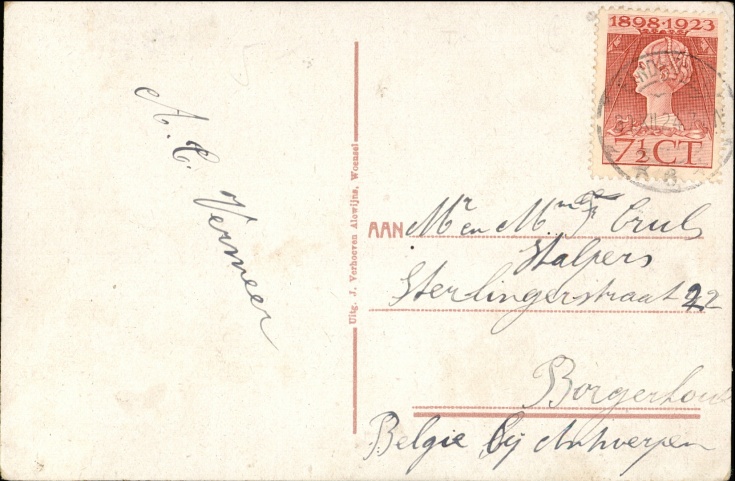 A. C. Vermeer
Uitg. J. Verhoeven Alowijns, Woensel
1898·1923
7½ CT
AAN Mr en Mme Cruls
Stalpers
Sterlingerstraat 22
Borgerhout
Belgie bij Antwerpen